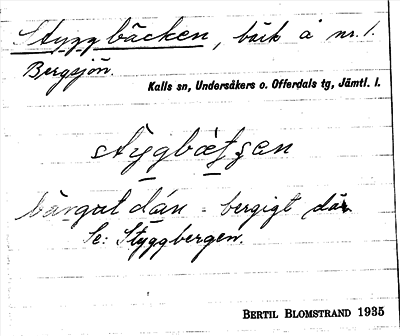 Styggbäcken, bäck å nr. 1.
Bergsjön.
Kalls sn, Undersåkers o. Offerdals tg, Jämtl. l.
stygbätjen
bärgut dán = bergigt där.
Se: Styggbergen.
BERTIL BLOMSTRAND 1935